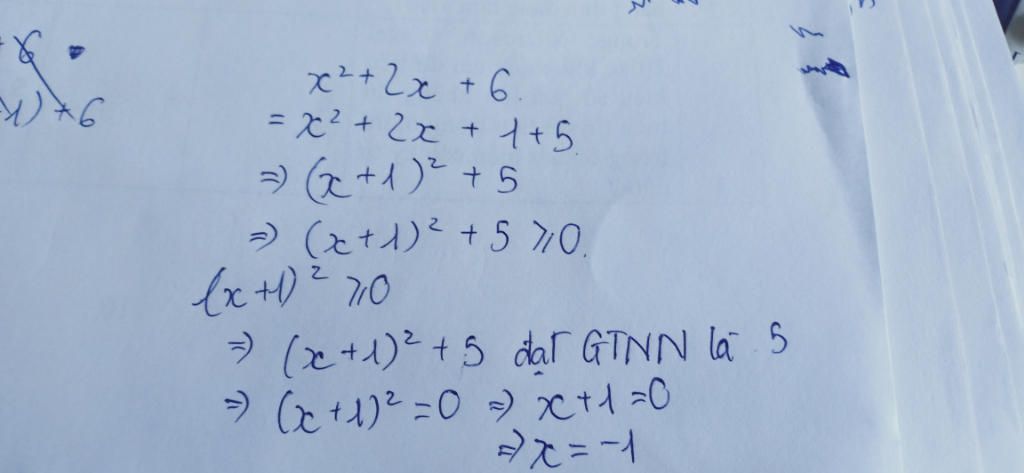 x² + 2x + 6.
= x² + 2x + 1 + 5.
⇒ (x + 1)² + 5
⇒ (x + 1)² + 5 ⩾ 0.
(x + 1)² ⩾ 0
⇒ (x + 1)² + 5 đạt GTNN là 5
⇒ (x + 1)² = 0 ⇒ x + 1 = 0
⇒ x = -1
1) + 6